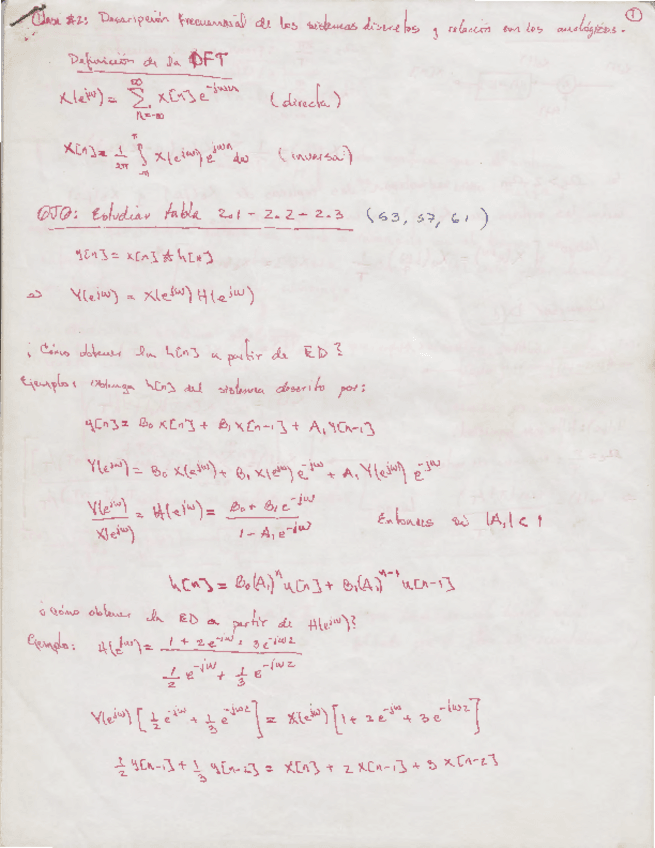 Clase #2: Descripción frecuencial de los sistemas discretos y relación con los analógicos.
1
Definición de la DFT
X(e^{jω}) = Σ_{n=-∞}^{∞} x[n] e^{-jωn} (directa)
x[n] = 1/2π ∫_{-π}^{π} X(e^{jω}) e^{jωn} dω (inversa)
OJO: Estudiar tabla 2.1 - 2.2 - 2.3 (53, 57, 61)
y[n] = x[n] * h[n]
⇒ Y(e^{jω}) = X(e^{jω}) H(e^{jω})
¿Cómo obtener la h[n] a partir de ED?
Ejemplo: Obtenga h[n] del sistema descrito por:
y[n] = B₀ x[n] + B₁ x[n-1] + A₁ y[n-1]
Y(e^{jω}) = B₀ X(e^{jω}) + B₁ X(e^{jω}) e^{-jω} + A₁ Y(e^{jω}) e^{-jω}
Y(e^{jω})/X(e^{jω}) = H(e^{jω}) = (B₀ + B₁ e^{-jω})/(1 - A₁ e^{-jω}) Entonces si |A₁| < 1
h[n] = B₀(A₁)^n u[n] + B₁(A₁)^{n-1} u[n-1]
¿Cómo obtener la ED a partir de H(e^{jω})?
Ejemplo: H(e^{jω}) = (1 + 2e^{-jω} + 3e^{-jω2})/(1/2 e^{-jω} + 1/3 e^{-jω2})
Y(e^{jω}) [1/2 e^{-jω} + 1/3 e^{-jω2}] = X(e^{jω}) [1 + 2e^{-jω} + 3e^{-jω2}]
1/2 y[n-1] + 1/3 y[n-2] = x[n] + 2 x[n-1] + 3 x[n-2]